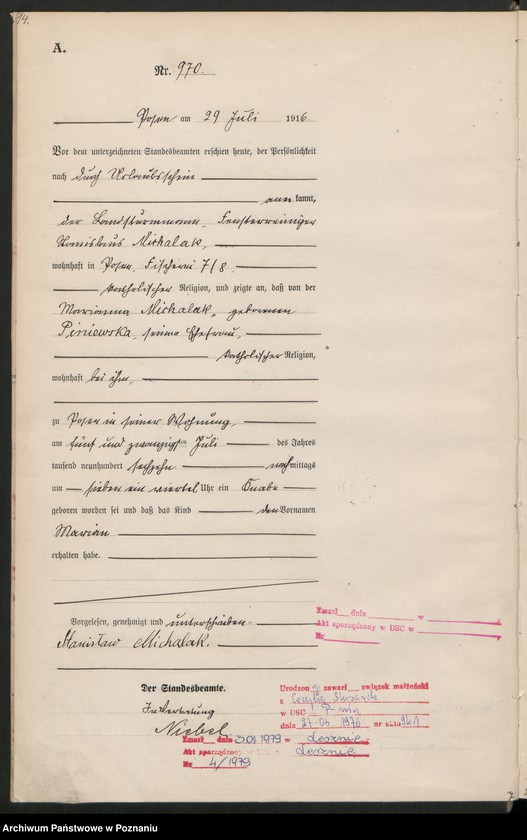 14.
A.
Nr. 970.
Posen am 29 Juli 1916.
Vor dem unterzeichneten Standesbeamten erschien heute, der Persönlichkeit
nach durch Urlaubsschein
anerkannt,
der Landsturmmann, Fensterreiniger
Stanislaus Michalak,
wohnhaft in Posen, Fischerei 7/8
katholischer Religion, und zeigte an, daß von der
Marianna Michalak, geborenen
Piniewska, seiner Ehefrau,
katholischer Religion,
wohnhaft bei ihm,
zu Posen in seiner Wohnung,
am fünf und zwanzigsten Juli des Jahres
tausend neunhundert sechzehn nachmittags
um sieben ein viertel Uhr ein Knabe
geboren worden sei und daß das Kind den Vornamen
Marian
erhalten habe.
Vorgelesen, genehmigt und unterschrieben.
Stanisław Michalak.
Zmarł dnia w
Akt sporządzony w USC w
Nr
Der Standesbeamte.
In Vertretung
Niebel
Urodzon y zawarł związek małżeński
z Cecylią
w USC
dnia 27.03. 1976 nr aktu 941
Zmarł dnia 1979 w Lesznie
Akt sporządzony w Lesznie
Nr 4/1979
Archiwum Państwowe w Poznaniu